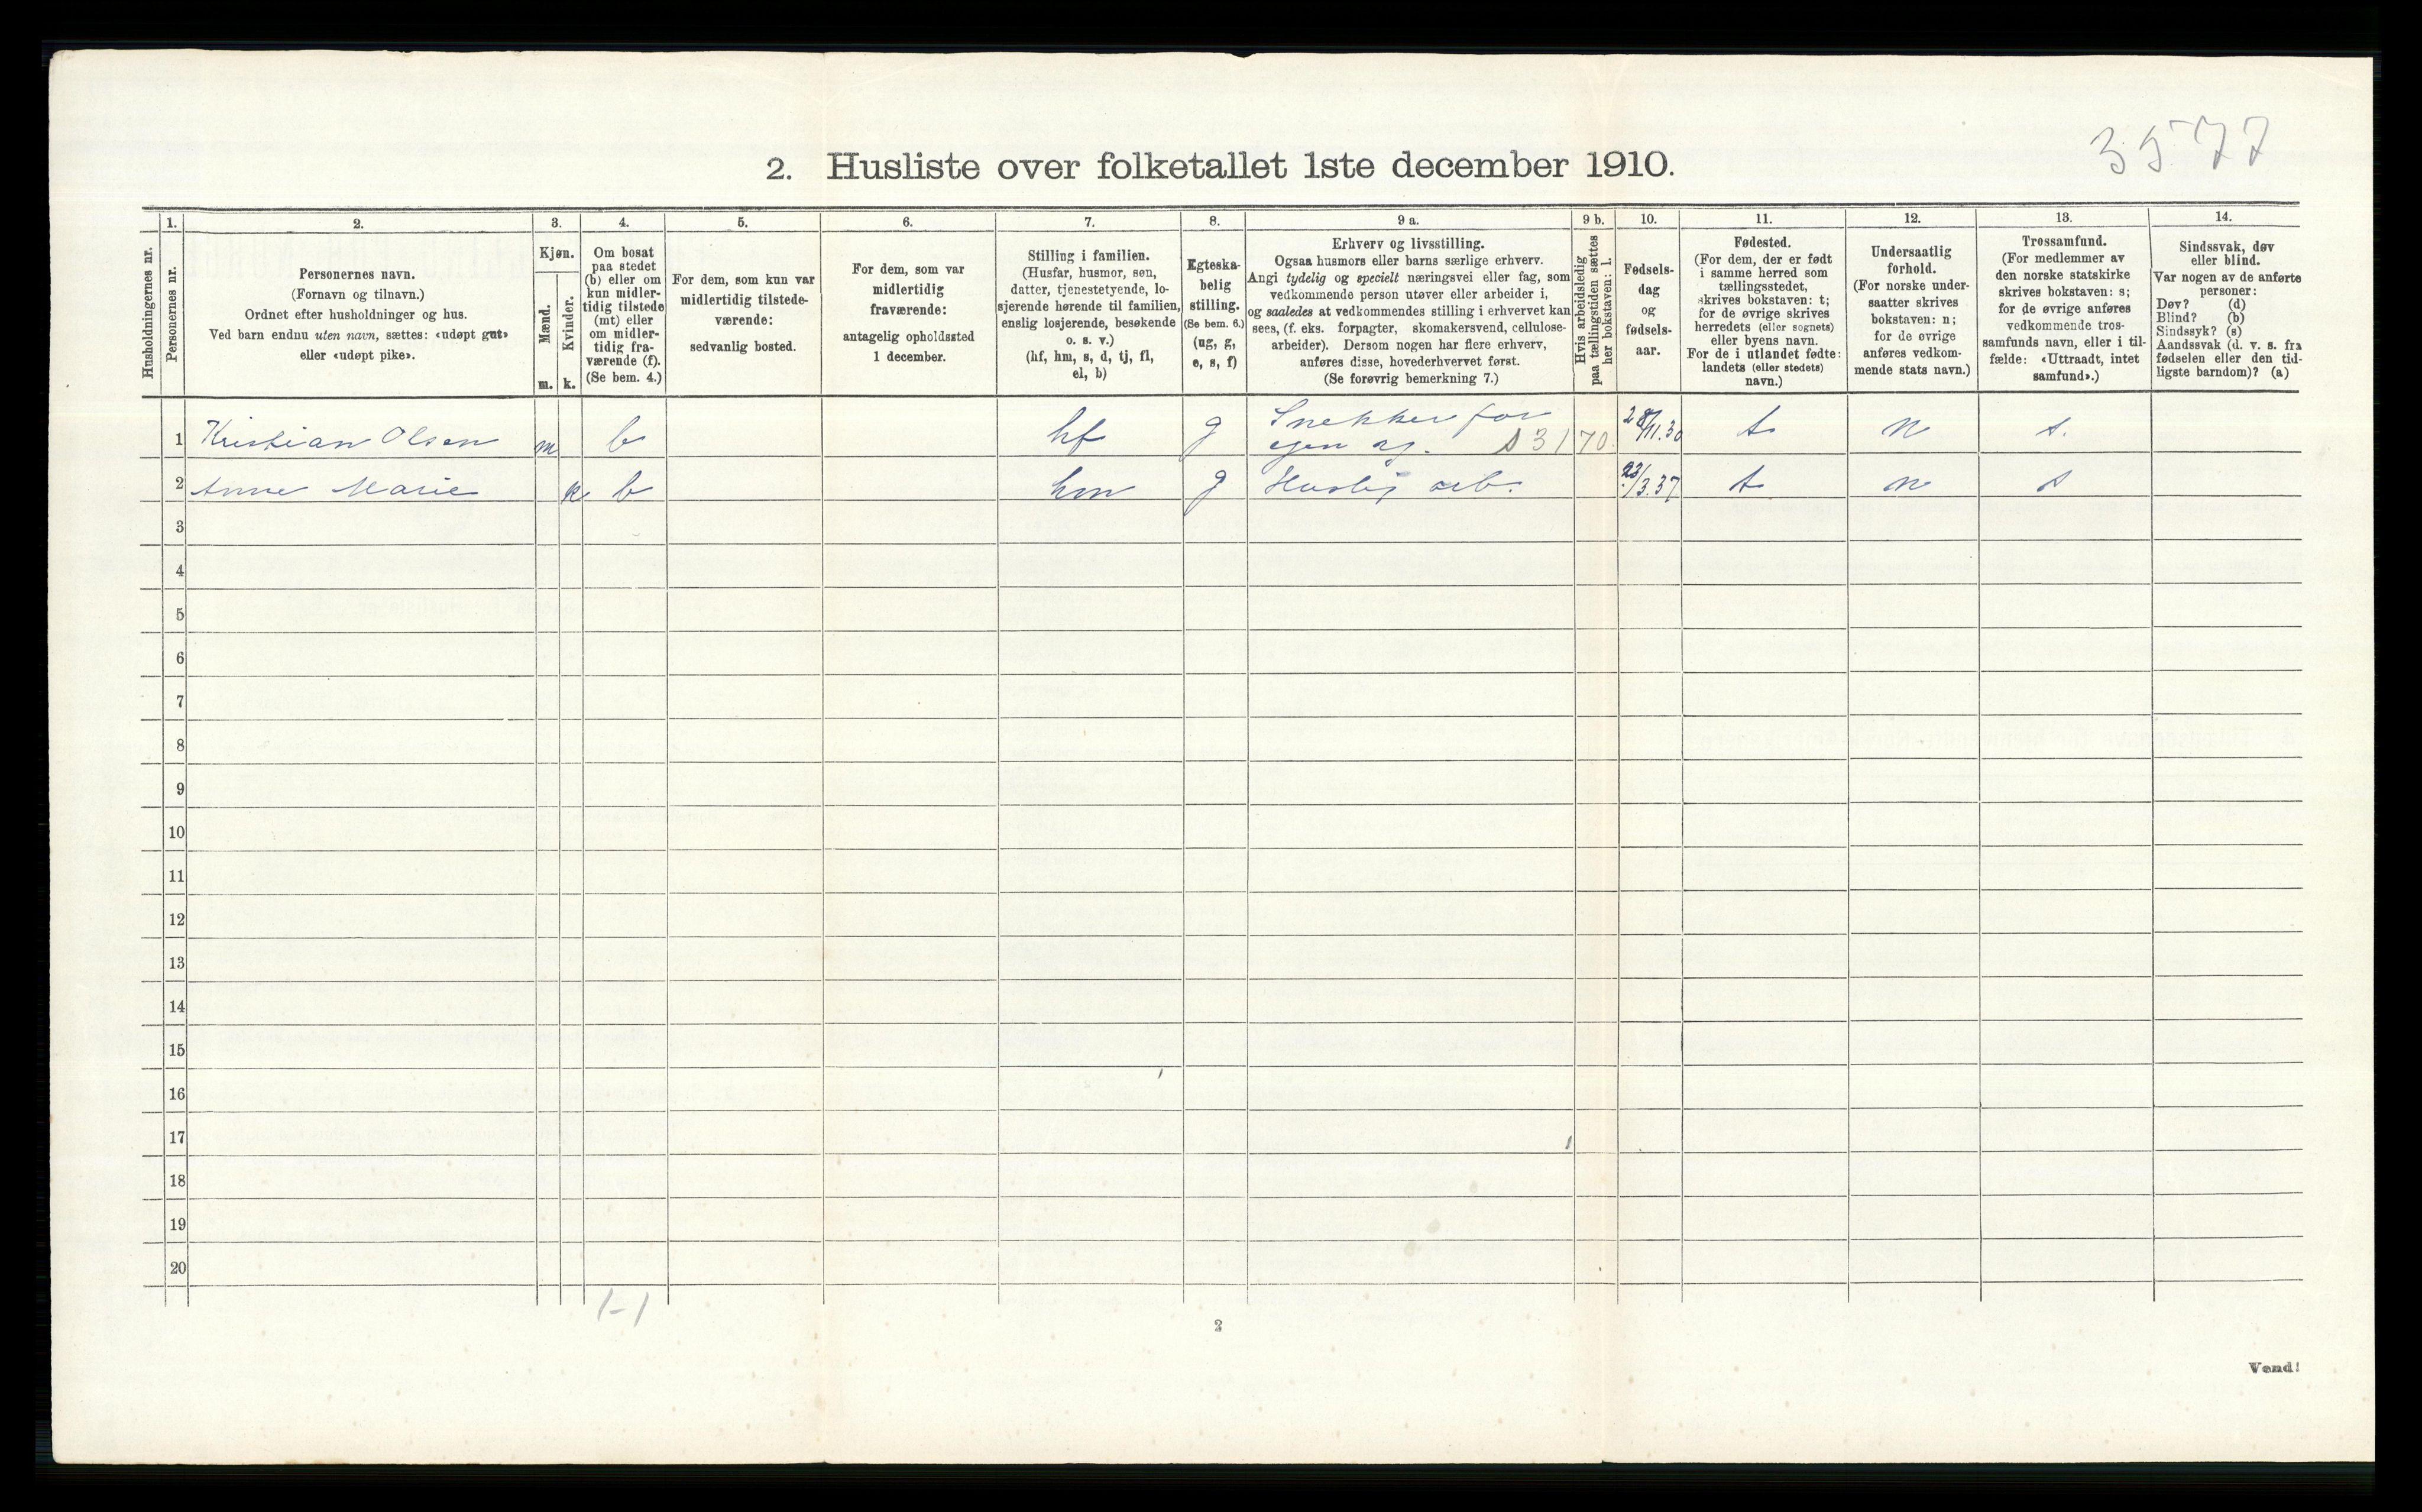 3577
2. Husliste over folketallet 1ste december 1910.
Husholdningernes nr.
1.
Personernes nr.
2.
Personernes navn.
(Fornavn og tilnavn.)
Ordnet efter husholdninger og hus.
Ved barn endnu uten navn, sættes: «udøpt gut»
eller «udøpt pike».
3.
Kjøn.
Mænd.
Kvinder.
m. k.
4.
Om bosat
paa stedet
(b) eller om
kun midler-
tidig tilstede
(mt) eller
om midler-
tidig fra-
værende (f).
(Se bem. 4.)
5.
For dem, som kun var
midlertidig tilstede-
værende:
sedvanlig bosted.
6.
For dem, som var
midlertidig
fraværende:
antagelig opholdssted
1 december.
7.
Stilling i familien.
(Husfar, husmor, søn,
datter, tjenestetyende, lo-
sjerende hørende til familien,
enslig losjerende, besøkende
o. s. v.)
(hf, hm, s, d, tj, fl,
el, b)
8.
Egteska-
belig
stilling.
(Se bem. 6.)
(ug, g,
e, s, f)
9 a.
Erhverv og livsstilling.
Ogsaa husmors eller barns særlige erhverv.
Angi tydelig og specielt næringsvei eller fag, som
vedkommende person utøver eller arbeider i,
og saaledes at vedkommendes stilling i erhvervet kan
sees, (f. eks. forpagter, skomakersvend, cellulose-
arbeider). Dersom nogen har flere erhverv,
anføres disse, hovederhvervet først.
(Se forøvrig bemerkning 7.)
9 b.
Hvis arbeidsledig
paa tællingstiden sættes
her bokstaven: l.
10.
Fødsels-
dag
og
fødsels-
aar.
11.
Fødested.
(For dem, der er født
i samme herred som
tællingsstedet,
skrives bokstaven: t;
for de øvrige skrives
herredets (eller sognets)
eller byens navn.
For de i utlandet fødte:
landets (eller stedets)
navn.)
12.
Undersaatlig
forhold.
(For norske under-
saatter skrives
bokstaven: n;
for de øvrige
anføres vedkom-
mende stats navn.)
13.
Trossamfund.
(For medlemmer av
den norske statskirke
skrives bokstaven: s;
for de øvrige anføres
vedkommende tros-
samfunds navn, eller i til-
fælde: «Uttraadt, intet
samfund».)
14.
Sindssvak, døv
eller blind.
Var nogen av de anførte
personer:
Døv? (d)
Blind? (b)
Sindssyk? (s)
Aandssvak (d. v. s. fra
fødselen eller den tid-
ligste barndom)? (a)
1 Kristian Olsen m b hf g Snekker for
egen 53170 28/11.30 t n s.
2 Anne Marie k b hm g Huslig arb. 23/3.37 t n s
3
4
5
6
7
8
9
10
11
12
13
14
15
16
17
18
19
20
1-1
2
Vend!